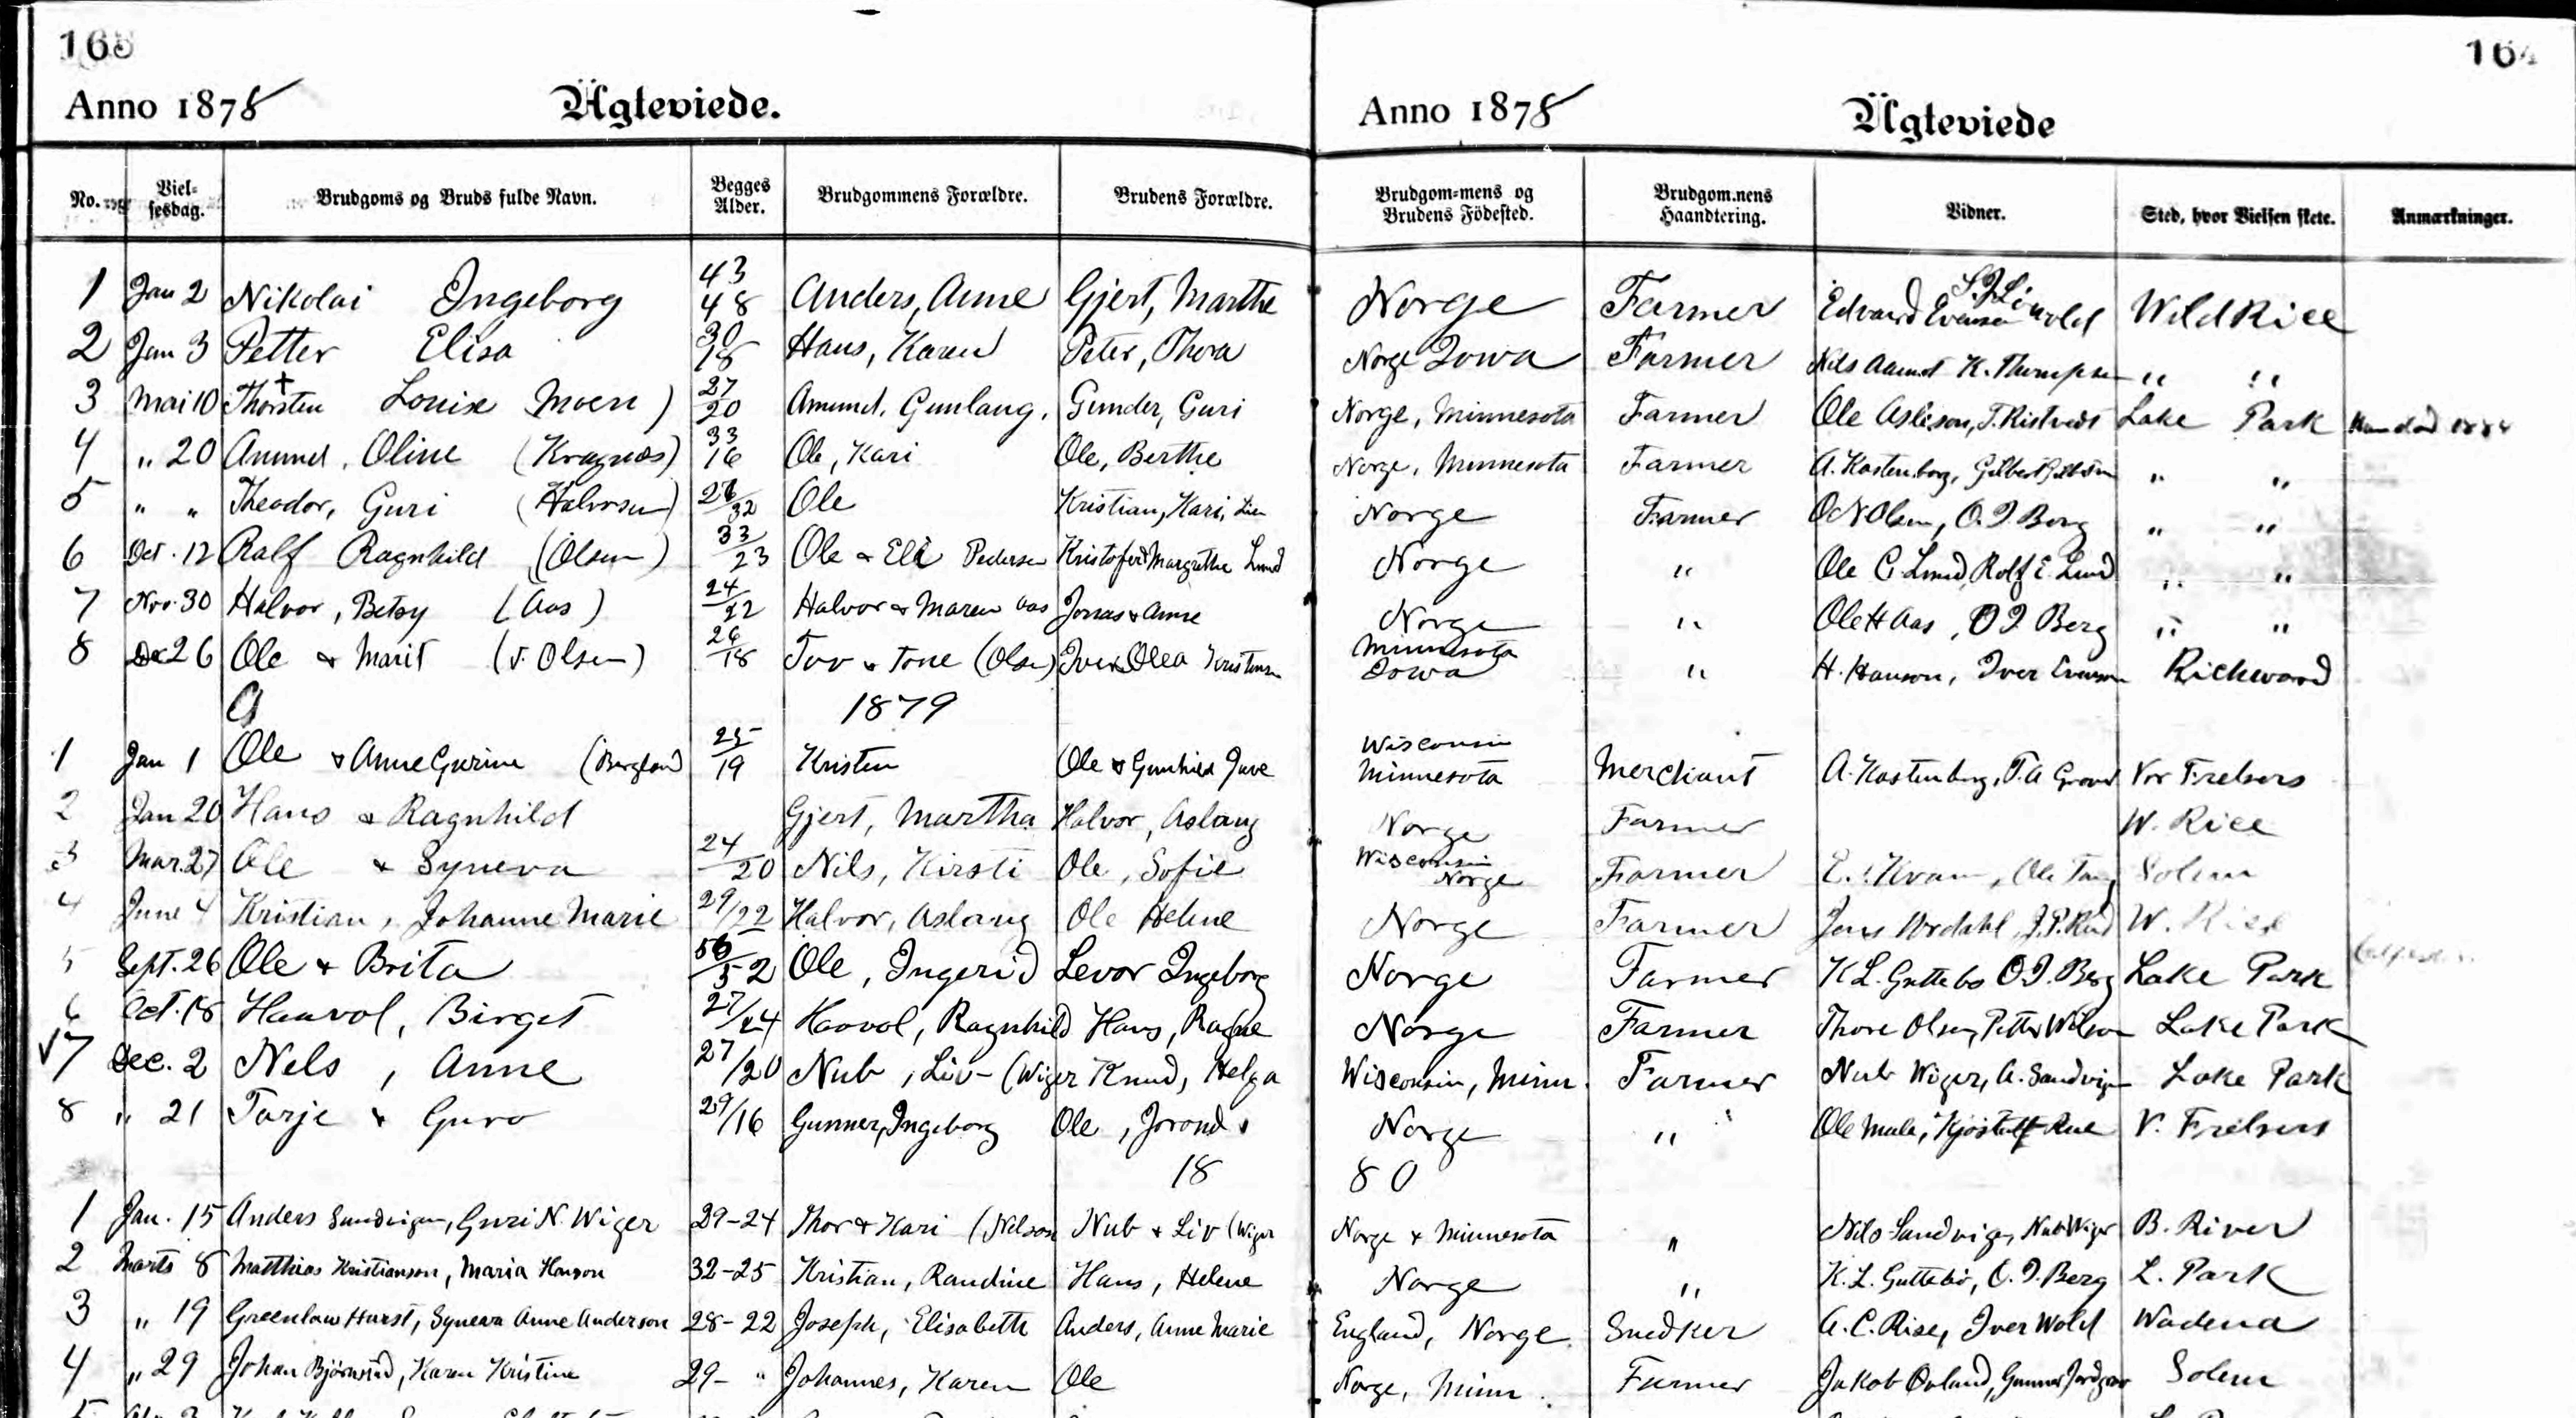 163
164
Anno 1878 Ägteviede.
Anno 1878 Ägteviede
No. Viel-sesdag. Brudgoms og Bruds fulde Navn. Begges Alder. Brudgommens Forældre. Brudens Forældre. Brudgom-mens og Brudens Födested. Brudgom.nens Haandtering. Vidner. Sted, hvor Vielsen skete. Anmærkninger.
1 Jan 2 Nikolai Ingeborg 43 48 Anders, Anne Gjert, Marthe Norge Farmer Edvard Evensen Wild Rice
2 Jan 3 Petter Elisa 30 18 Hans, Karen Peter, Thora Norge Iowa Farmer Nils Aamot K. Thompson " "
3 Mai 10 Thorsten Louise Moen) 27 20 Amund, Gunlaug, Gunder, Guri Norge, Minnesota Farmer Ole Asleson, T. Ristvedt Lake Park 1884
4 " 20 Amund, Oline (Kragnæs) 33 16 Ole, Kari Ole, Berthe Norge, Minnesota Farmer A. Kostenborg, Gilbert " "
5 " " Theodor, Guri (Halvorsen) 32 Ole Kristian, Kari, Norge Farmer O N Olsen, O. J. Berg " "
6 Oct. 12 Ralf Ragnhild (Olsen) 33/23 Ole & Eli Pedersen Kristofer & Margrethe Lund Norge " Ole C. Lund, Rolf E. Lund " "
7 Nov. 30 Halvor, Betsy (Aas) 24/22 Halvor & Maren Aas Jonas & Anne Norge " Ole H Aas, O J Berg " "
8 Dec 26 Ole & Marit (T. Olsen) 26/18 Tov & Tone (Olsen) Iver & Olea Minnesota Iowa " H. Hanson, Iver Evenson Richwood
1879
1 Jan 1 Ole & Anne Gurine (Bergland 25/19 Kristen Ole & Gunhild Juve Wisconsin Minnesota Merchant A. Kostenborg, T. A Grover Vor Frelsers
2 Jan 20 Hans & Ragnhild Gjert, Martha Halvor, Aslaug Norge Farmer W. Rice
3 Mar. 27 Ole & Syneva 24/20 Nils, Kirsti Ole, Sofie Wisconsin Norge Farmer E. Kvam, Ole Solem
4 June 4 Kristian, Johanne Marie 29/22 Halvor, Aslaug Ole Helene Norge Farmer Jens Nordahl, J. P. Rud W. Rice
5 Sept. 26 Ole & Brita 56/52 Ole, Ingerid Levor Ingeborg Norge Farmer K L. Guttebo O J. Berg Lake Park
6 Oct. 18 Haavol, Birget 27/24 Haavol, Ragnhild Hans, Norge Farmer Thore Olsen, Petter Wilson Lake Park
√7 Dec. 2 Nels, Anne 27/20 Nub, Liv - (Wiger Knud, Helga Wisconsin, Minn. Farmer Nub Wiger, A. Sandvigen Lake Park
8 " 21 Tarje & Guro 29/16 Gunner, Ingeborg Ole, Jorond Norge " Ole Mule, V. Frelsers
18 80
1 Jan. 15 Anders Sandvigen, Guri N. Wiger 29-24 Thor & Kari (Nelson Nub & Liv (Wiger Norge & Minnesota " Nils Sandvigen, Nub Wiger B. River
2 Marts 8 Matthias Kristianson, Maria Hanson 32-25 Kristian, Randine Hans, Helene Norge " K. L. Guttebö, O. J. Berg L. Park
3 " 19 Greenlaw Hurst, Syneva Anne Anderson 28-22 Joseph, Elisabeth Anders, Anne Marie England, Norge Snedker A. C. Rise, Iver Wold Wadena
4 " 29 Johan Björnstad, Karen Kristine 29- " Johannes, Karen Ole Norge, Minn. Farmer Jakob Övland, Gunner Solem